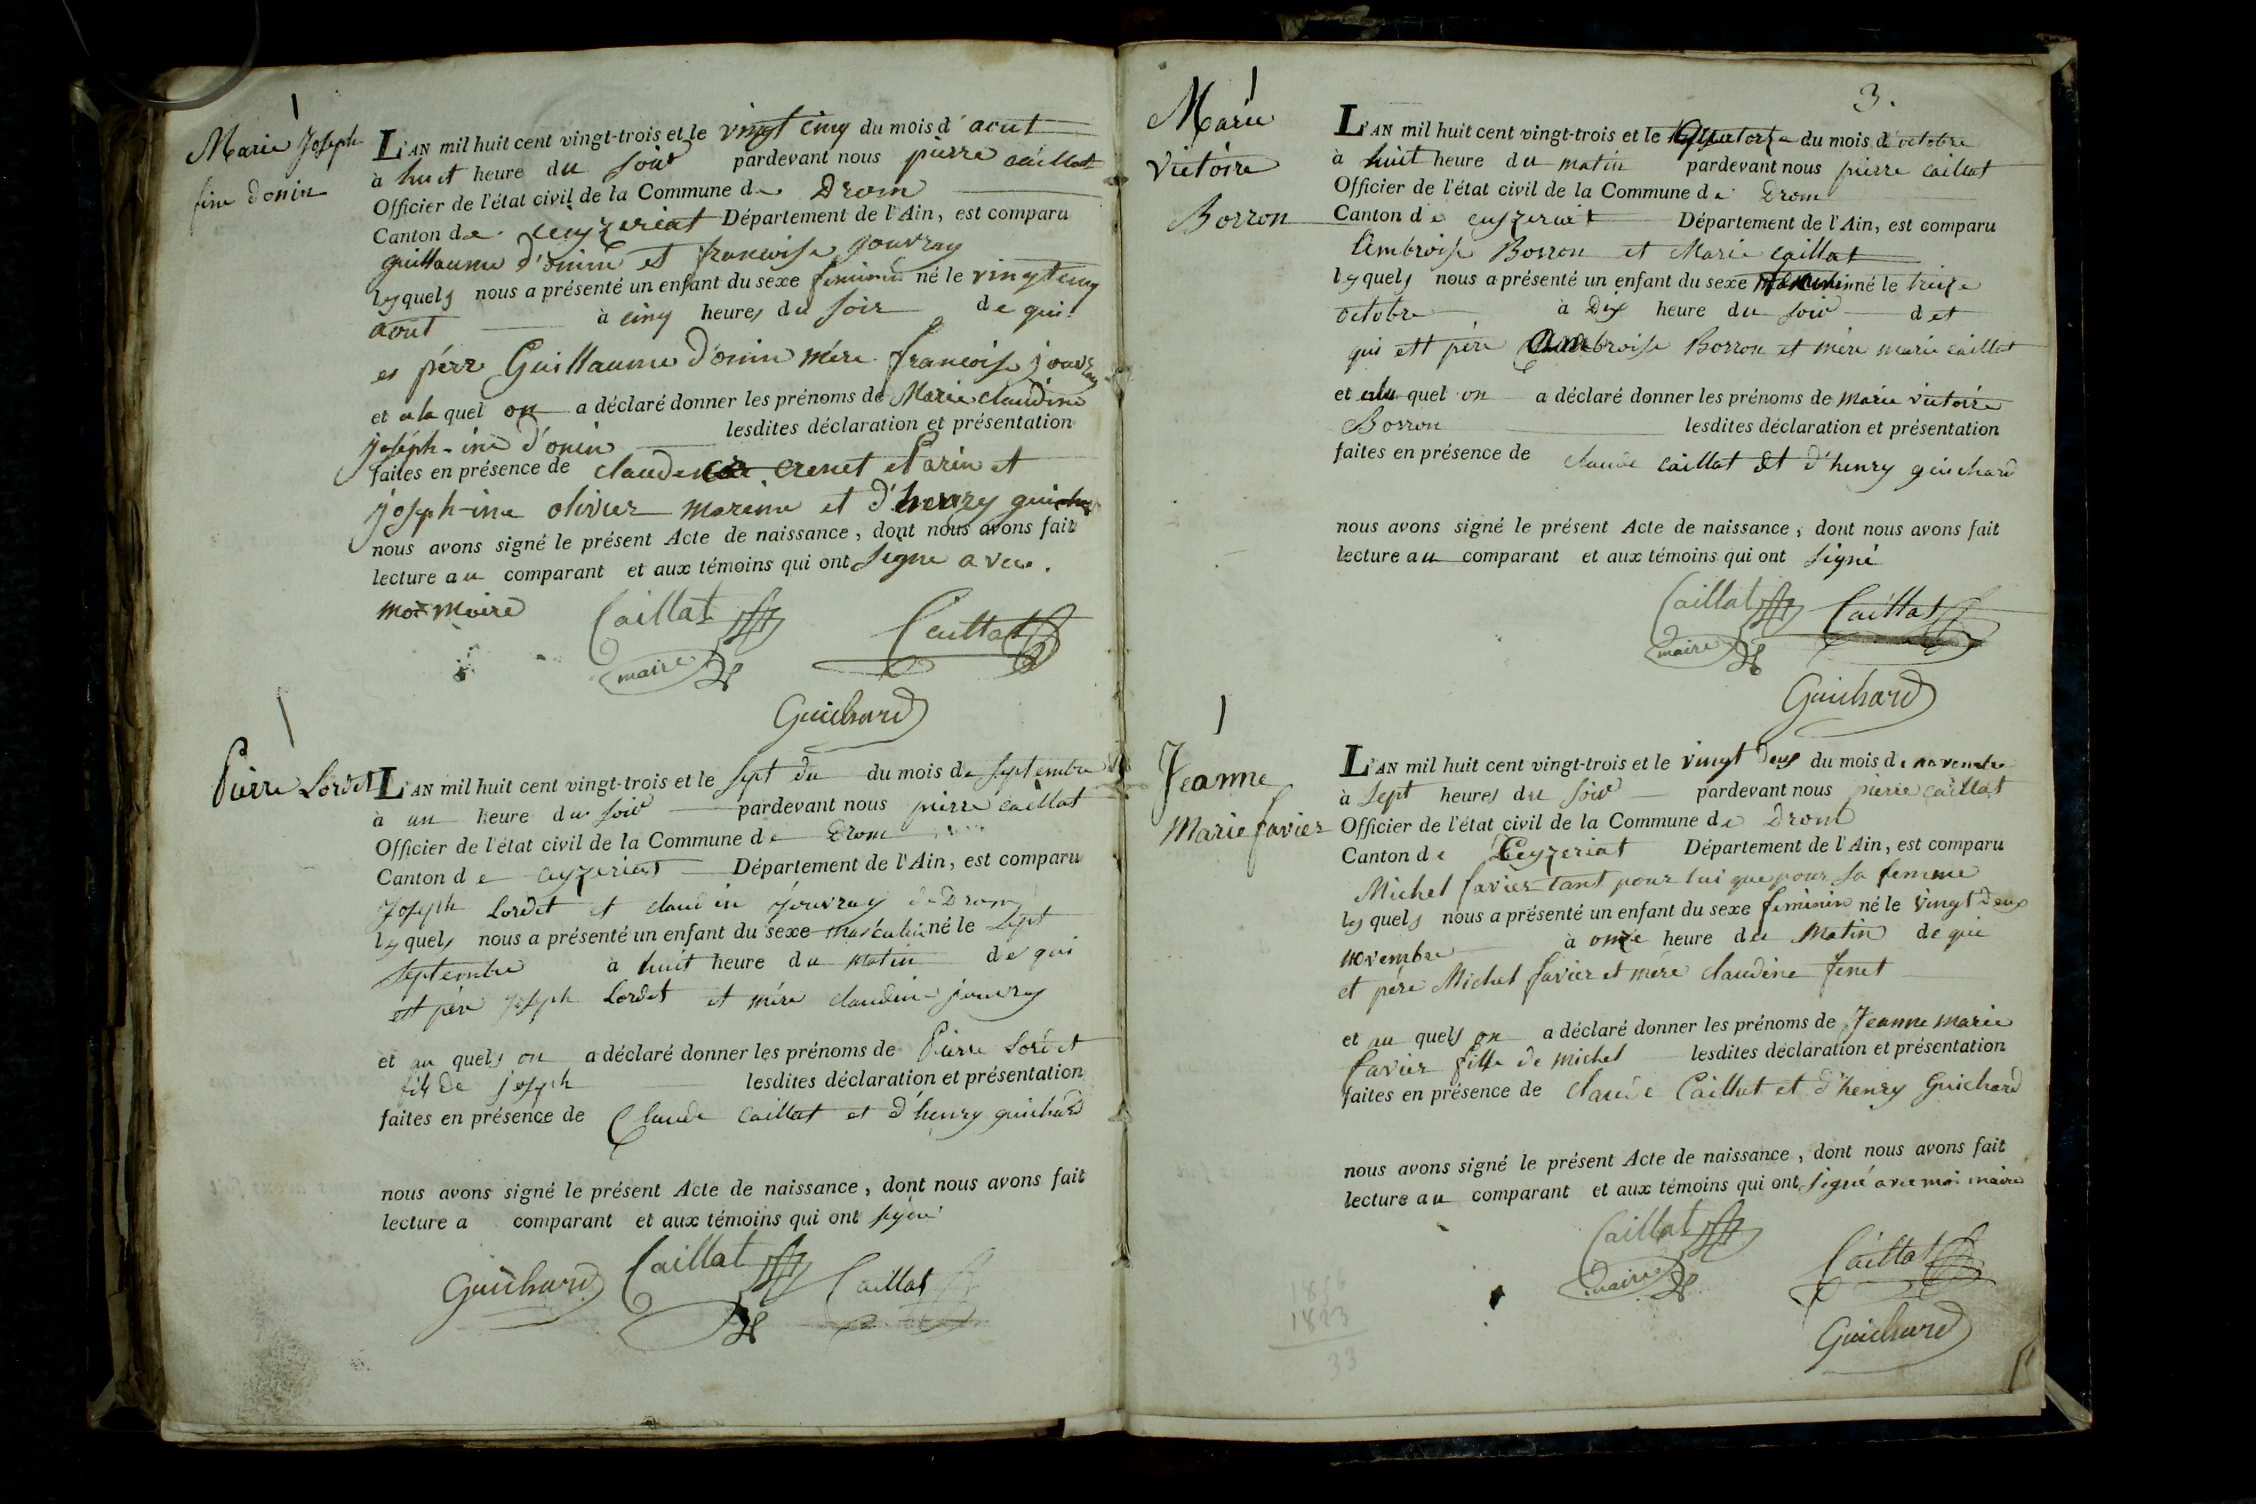 Marie Joseph
fine donin
L'AN mil huit cent vingt-trois et le vingt cinq du mois d' aout
à huit heure du soir pardevant nous pierre caillat
Officier de l'état civil de la Commune de Drom
Canton de ceyzeriat Département de l'Ain, est comparu
guillaume d'onin et francoise jouvray
lesquels nous a présenté un enfant du sexe feminin né le vingt cinq
aout à cinq heures du soir de qui
es pére Guillaume d'onin mére francoise jouvray
et a la quel on a déclaré donner les prénoms de Marie claudine
joséph-ine d'onin lesdites déclaration et présentation
faites en présence de claude crenet Parin et
joseph-ine olivier mareine et d'henry guichard
nous avons signé le présent Acte de naissance, dont nous avons fait
lecture au comparant et aux témoins qui ont signe avec
moi maire Caillat Caillat
maire
Guichard
Pierre Lordet
L'AN mil huit cent vingt-trois et le sept du du mois de septembre
à un heure du soir pardevant nous pierre caillat
Officier de l'état civil de la Commune de Drom
Canton de ceyzeriat Département de l'Ain, est comparu
Joseph Lordet et claudin jouvray de Drom
lesquels nous a présenté un enfant du sexe masculin né le sept
septembre à huit heure du matin de qui
est pére joseph Lordet et mére claudine jouvray
et au quels on a déclaré donner les prénoms de Pierre Lordet
fils de joseph lesdites déclaration et présentation
faites en présence de Claude caillat et d'henry guichard
nous avons signé le présent Acte de naissance, dont nous avons fait
lecture a comparant et aux témoins qui ont signé
Guichard Caillat Caillat
3.
Marie
victoire
Borron
L'AN mil huit cent vingt-trois et le Quatorze du mois d'octobre
à huit heure du matin pardevant nous pierre caillat
Officier de l'état civil de la Commune de Drom
Canton de ceyzeriat Département de l'Ain, est comparu
Ambroise Borron et Marie caillat
lesquels nous a présenté un enfant du sexe feminin né le treize
octobre à Dix heure du soir det
qui est pére Ambroise Borron et mére marie caillat
et alu quel on a déclaré donner les prénoms de marie victoire
Borron lesdites déclaration et présentation
faites en présence de claude caillat et d'henry guichard
nous avons signé le présent Acte de naissance, dont nous avons fait
lecture au comparant et aux témoins qui ont signé
Caillat Caillat
maire
Guichard
Jeanne
Marie favier
L'AN mil huit cent vingt-trois et le vingt deux du mois de novembre
à sept heures du soir pardevant nous pierre caillat
Officier de l'état civil de la Commune de Drom
Canton de Ceyzeriat Département de l'Ain, est comparu
Michel favier tant pour lui que pour sa femme
lesquels nous a présenté un enfant du sexe feminin né le vingt deux
novembre à onze heure du matin de qui
et pére Michel favier et mére claudine fenet
et au quels on a déclaré donner les prénoms de Jeanne marie
favier fille de michel lesdites déclaration et présentation
faites en présence de claude Caillat et d'henry Guichard
nous avons signé le présent Acte de naissance, dont nous avons fait
lecture au comparant et aux témoins qui ont signé avec moi maire
Caillat Caillat
maire
Guichard
1856
1823
33